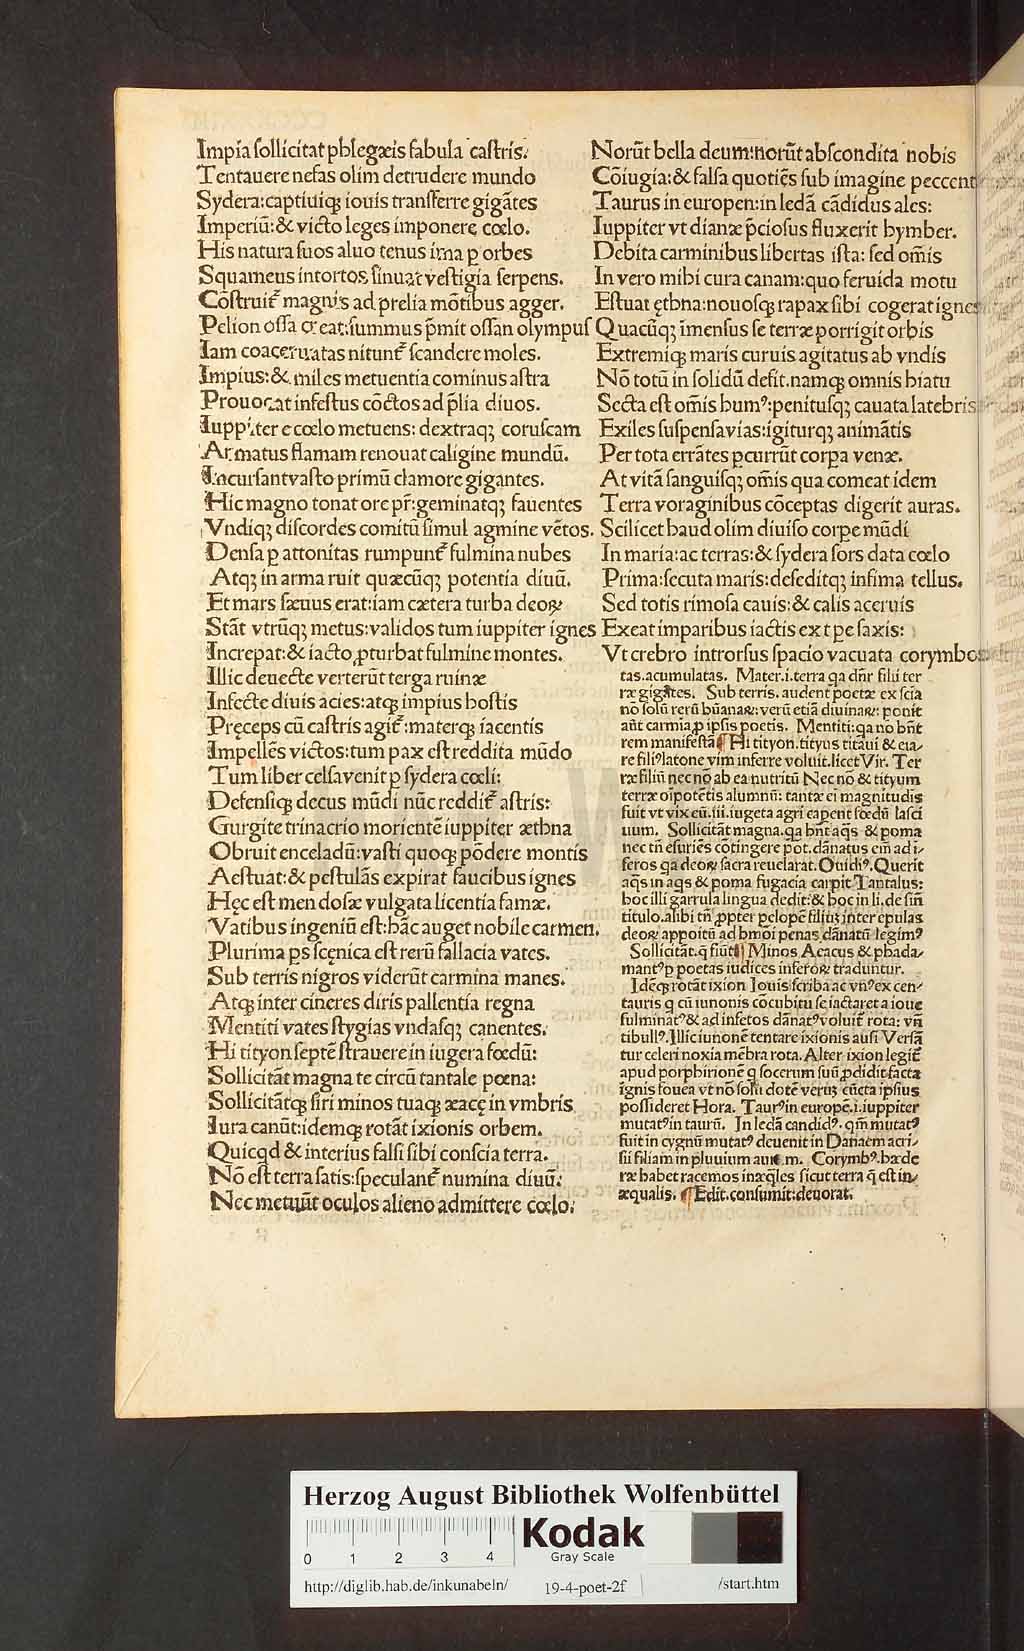 Impia sollicitat phlegæis fabula castris.
Tentauere nefas olim detrudere mundo
Sydera:captiuiqꝫ iouis transferre gigãtes
Imperiũ:& victo leges imponere cœlo.
His natura suos aluo tenus ima p orbes
Squameus intortos sinuat vestigia serpens.
Cõstruit᷑ magnis ad prelia mõtibus agger.
Pelion ossa creat:summus p̃mit ossan olympus
Iam coaceruatas nitunt᷑ scandere moles.
Impius:& miles metuentia cominus astra
Prouocat infestus cõctos ad p̃lia diuos.
Iuppiter e cœlo metuens: dextraqꝫ coruscam
Armatus flamam renouat caligine mundũ.
Incursant vasto primũ clamore gigantes.
Hic magno tonat ore pr̃:geminatqꝫ fauentes
Vndiqꝫ discordes comitũ simul agmine vẽtos.
Densa p attonitas rumpunt᷑ fulmina nubes
Atqꝫ in arma ruit quæcũqꝫ potentia diuũ.
Et mars sæuus erat:iam cætera turba deoꝝ
Stãt vtrũqꝫ metus:validos tum iuppiter ignes
Increpat:& iacto ꝓturbat fulmine montes.
Illic deuecte verterũt terga ruinæ
Infecte diuis acies:atqꝫ impius hostis
Pręceps cũ castris agit᷑:materqꝫ iacentis
Impellẽs victos:tum pax est reddita mũdo
Tum liber celsa venit p sydera cœli:
Defensiqꝫ decus mũdi nũc reddit᷑ astris:
Gurgite trinacrio morientẽ iuppiter æthna
Obruit enceladũ:vasti quoqꝫ põdere montis
Aestuat:& pestulãs expirat faucibus ignes
Hęc est mendosæ vulgata licentia famæ.
Vatibus ingeniũ est:hãc auget nobile carmen.
Plurima ps scęnica est rerũ fallacia vates.
Sub terris nigros viderũt carmina manes.
Atqꝫ inter cineres diris pallentia regna
Mentiti vates stygias vndasqꝫ canentes.
Hi tityon septẽ strauere in iugera fœdũ:
Sollicitãt magna te circũ tantale pœna:
Sollicitãtqꝫ siri minos tuaqꝫ æacę in vmbris
Iura canũt:idemqꝫ rotãt ixionis orbem.
Quicqd & interius falsi sibi conscia terra.
Nõ est terra satis:speculant᷑ numina diuũ:
Nec metuũt oculos alieno admittere cœlo.
Norũt bella deum:norũt abscondita nobis
Cõiugia:& falsa quotiẽs sub imagine peccent
Taurus in europen:in ledã cãdidus ales:
Iuppiter vt dianæ p̃ciosus fluxerit hymber.
Debita carminibus libertas ista: sed om̃is
In vero mihi cura canam:quo feruida motu
Estuat ęthna:nouosqꝫ rapax sibi cogerat ignes
Quacũqꝫ ĩmensus se terræ porrigit orbis
Extremiqꝫ maris curuis agitatus ab vndis
Nõ totũ in solidũ desit.namqꝫ omnis hiatu
Secta est om̃is humꝰ:penitusqꝫ cauata latebris
Exiles suspensa vias:igiturqꝫ animãtis
Per tota errãtes pcurrũt corpa venæ.
At vitã sanguisqꝫ om̃is qua comeat idem
Terra voraginibus cõceptas digerit auras.
Scilicet haud olim diuiso corpe mũdi
In maria:ac terras:& sydera sors data cœlo
Prima:secuta maris:deseditqꝫ infima tellus.
Sed totis rimosa cauis:& calis aceruis
Exeat imparibus iactis ex tpe saxis:
Vt crebro introrsus spacio vacuata corymbos
tas.acumulatas. Mater.i.terra qa dñr filii ter
ræ gigãtes. Sub terris. audent poetæ ex scia
nõ solũ rerũ hũanaꝝ: verũ etiã diuinaꝝ: ponit
aũt carmia ꝓ ipsis poetis. Mentiti:qa no hñt
rem manifestã ¶ Hi tityon.tityus titaui & eia-
re filiꝰ latone vim inferre voluit.licet Vir. Ter
ræ filiũ nec nõ ab ea nutritũ Nec nõ & tityum
terræ oĩpotẽtis alumnũ: tantæ ei magnitudĩs
fuit vt vix eũ.iii.iugeta agri capent fœdũ lasci
uum. Sollicitãt magna.qa hñt aq̃s & poma
nec tñ esuriẽs cõtingere pot.dãnatus em̃ ad ĩ-
feros qa deoꝝ sacra reuelarat.Ouidiꝰ.Querit
aq̃s in aqs & poma fugacia carpit Tantalus:
hoc illi garrula lingua dedit:& hoc in li.de siñ
titulo.alibi tñ ꝓpter pelopẽ filiuꝫ inter epulas
deoꝝ appoitũ ad hm̃oi penas dãnatũ legimꝰ
Sollicitãt.q fiũt ¶ Minos Aeacus & rhada-
mantꝰ p poetas iudices inferoꝝ traduntur.
Idẽqꝫ rotãt ixion Iouis scriba ac vnꝰ ex cen-
tauris q cũ iunonis cõcubitu se iactaret a ioue
fulminatꝰ & ad infetos dãnatꝰ voluit᷑ rota: vñ
tibullꝰ.Illic iunonẽ tentare ixionis ausi Versã
tur celeri noxia mẽbra rota. Alter ixion legit᷑
apud porphirionẽ q socerum suũ ꝓdidit facta
ignis fouea vt nõ solũ dotẽ veruꝫ cũcta ipsius
possideret Hora. Taurꝰ in europẽ.i.iuppiter
mutatꝰ in taurũ. In ledã candidꝰ. qm̃ mutatꝰ
fuit in cygnũ mutatꝰ deuenit in Danaem acri-
sii filiam in pluuium auꝛe m. Corymbꝰ.hæde
ræ habet racemos inæq̃les sicut terra q̃ est in-
æqualis. ¶ Edit.consumit:deuorat.
Herzog August Bibliothek Wolfenbüttel
0 1 2 3 4
Kodak
Gray Scale
http://diglib.hab.de/inkunabeln/ 19-4-poet-2f /start.htm